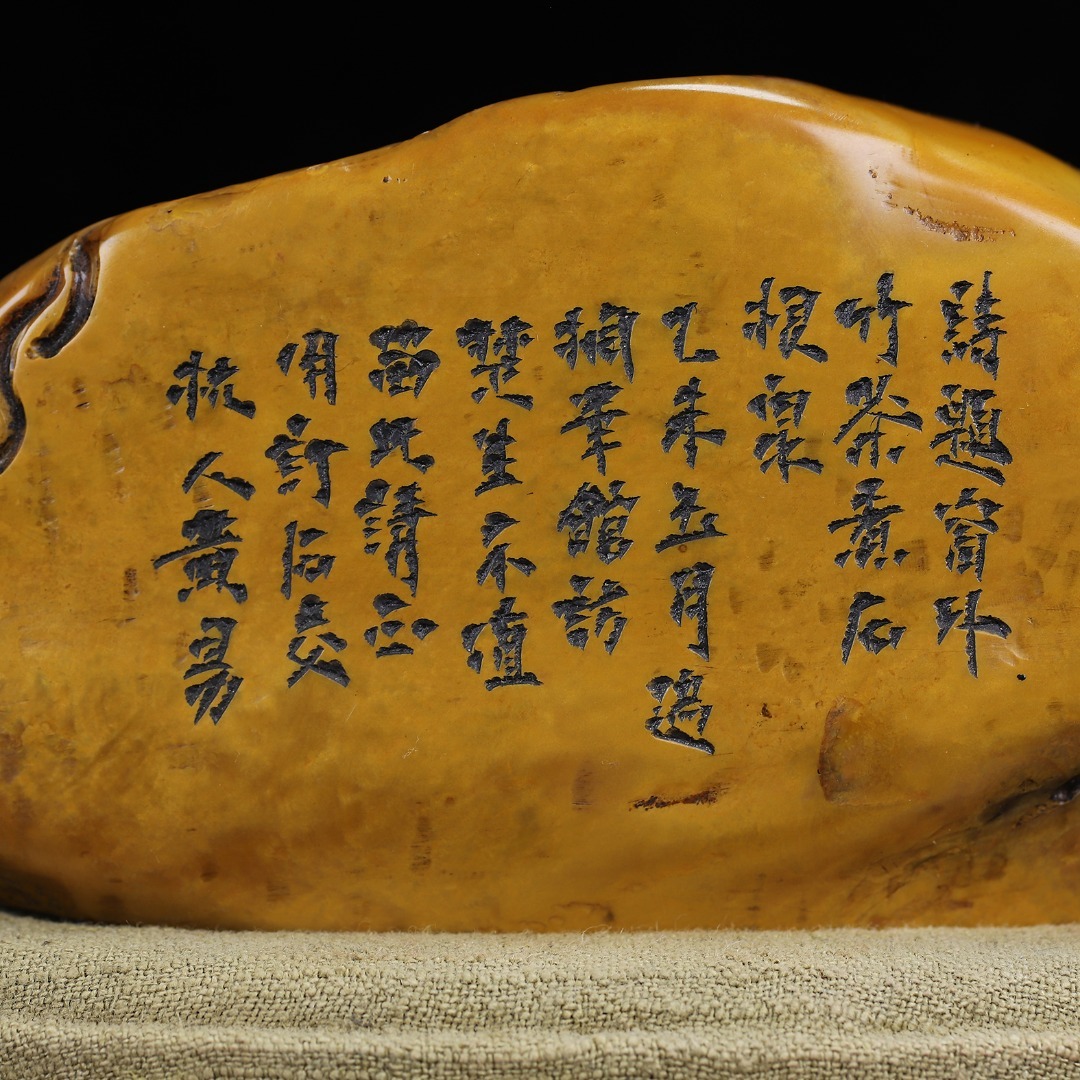 詩題窗外
竹茶煮石
根泉
乙未五月過
華館訪
楚生不值
留此請正
用訂石交
杭人黃易